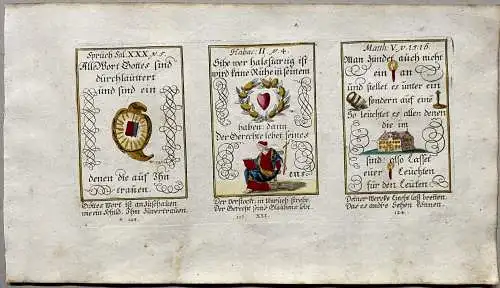 Sprüch Sal. XXX v. 5.
Alle Wort Gottes sind
durchläutert
und sind ein
denen die auf Ihn
trauen.
Gottes Wort ist anzuschauen
wie ein Schild. Ihm zuvertrauen.
Habac: II v. 4.
Sihe wer halsstarrig ist
wird keine Ruhe in seinem
haben: dann
Der Gerechte lebet seines
ens.
Der Verstockt in
Der Gerecht seins Glaubens lebt.
XXI.
Matth: V. v. 15. 16.
Man Zündet auch nicht
ein an
und stellet es unter ein
sondern auf eine
So leuchtet es allen denen
die im
sind: also Lasset
euer Leuchten
für den Leuten
Deiner Wercke Liecht laß brennen.
Das es andre Sehen können.
124.